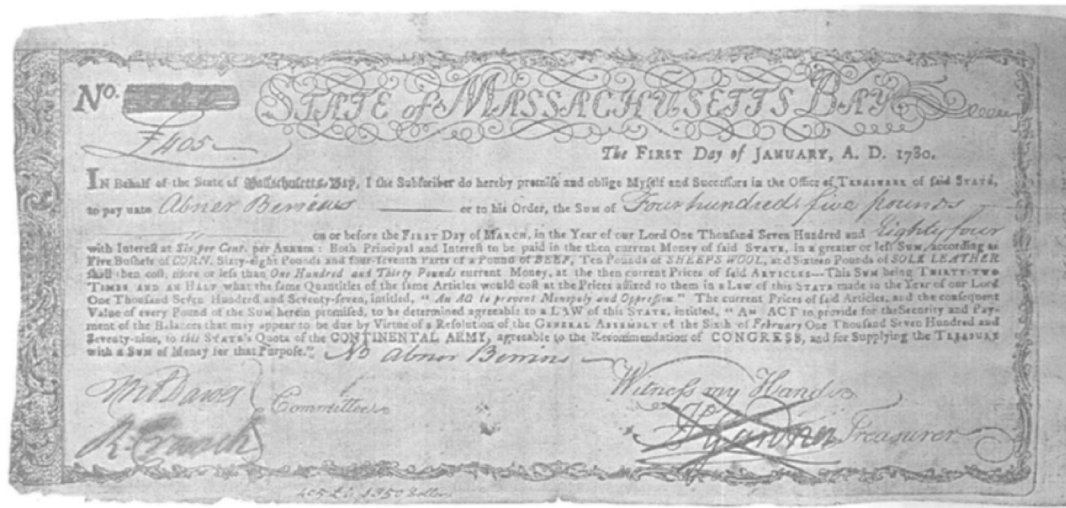 No.
STATE of MASSACHUSETTS BAY
£405
The FIRST Day of JANUARY, A. D. 1780.
IN Behalf of the State of Massachusetts-Bay, I the Subscriber do hereby promise and oblige Myself and Successors in the Office of TREASURER of said STATE,
to pay unto Abner Berrins or to his Order, the Sum of Four hundred & five pounds
on or before the FIRST Day of MARCH, in the Year of our Lord One Thousand Seven Hundred and Eighty four
with Interest at Six per Cent. per ANNUM: Both Principal and Interest to be paid in the then current Money of said STATE, in a greater or less SUM, according as
Five Bushels of CORN, Sixty-eight Pounds and four-seventh Parts of a Pound of BEEF, Ten Pounds of SHEEPS WOOL, and Sixteen Pounds of SOLE LEATHER
shall then cost, more or less than One Hundred and Thirty Pounds current Money, at the then current Prices of said ARTICLES—This SUM being THIRTY-TWO
TIMES AND AN HALF what the same Quantities of the same Articles would cost at the Prices affixed to them in a Law of this STATE made in the Year of our Lord
One Thousand Seven Hundred and Seventy-seven, intitled, "An Act to prevent Monopoly and Oppression." The current Prices of said Articles, and the consequent
Value of every Pound of the SUM herein promised, to be determined agreeable to a LAW of this STATE, intitled, "An ACT to provide for the Security and Pay-
ment of the Balances that may appear to be due by Virtue of a Resolution of the GENERAL ASSEMBLY of the Sixth of February One Thousand Seven Hundred and
Seventy-nine, to this STATE's Quota of the CONTINENTAL ARMY, agreeable to the Recommendation of CONGRESS, and for Supplying the TREASURY
with a SUM of Money for that Purpose." Abner Berrins
Witness my Hand
Dawes
Committee
R. Cranch
Treasurer